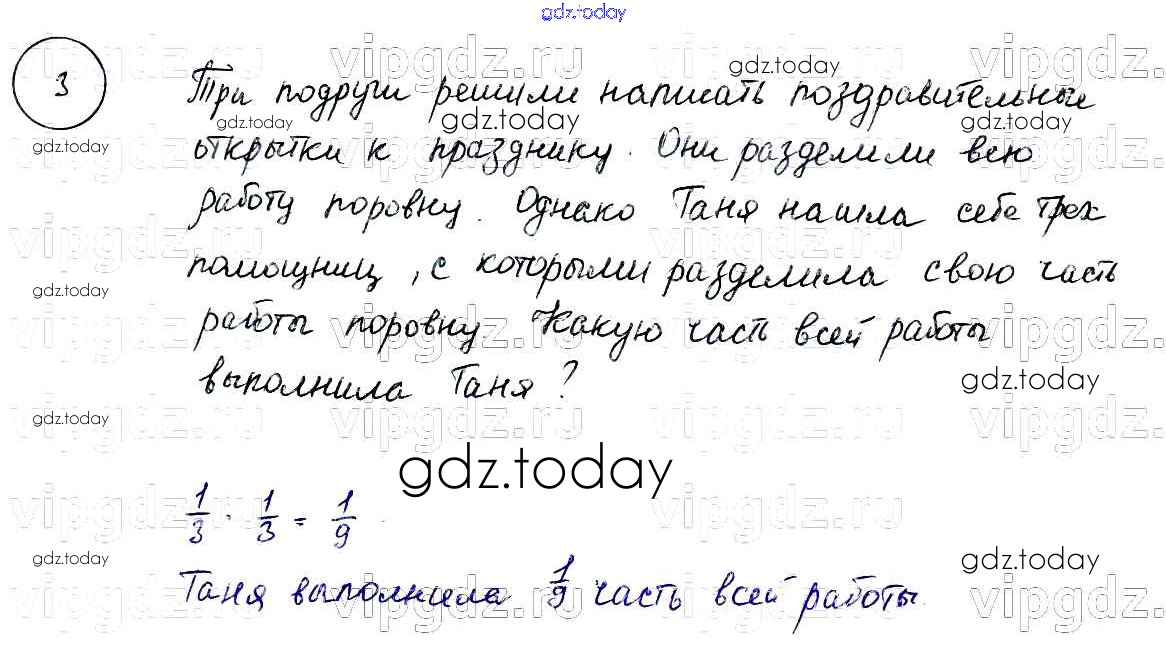 gdz.today
3
Три подруги решили написать поздравительные
открытки к празднику. Они разделили всю
работу поровну. Однако Таня нашла себе трех
помощниц, с которыми разделила свою часть
работы поровну. Какую часть всей работы
выполнила Таня?
gdz.today
1/3 · 1/3 = 1/9
Таня выполнила 1/9 часть всей работы.